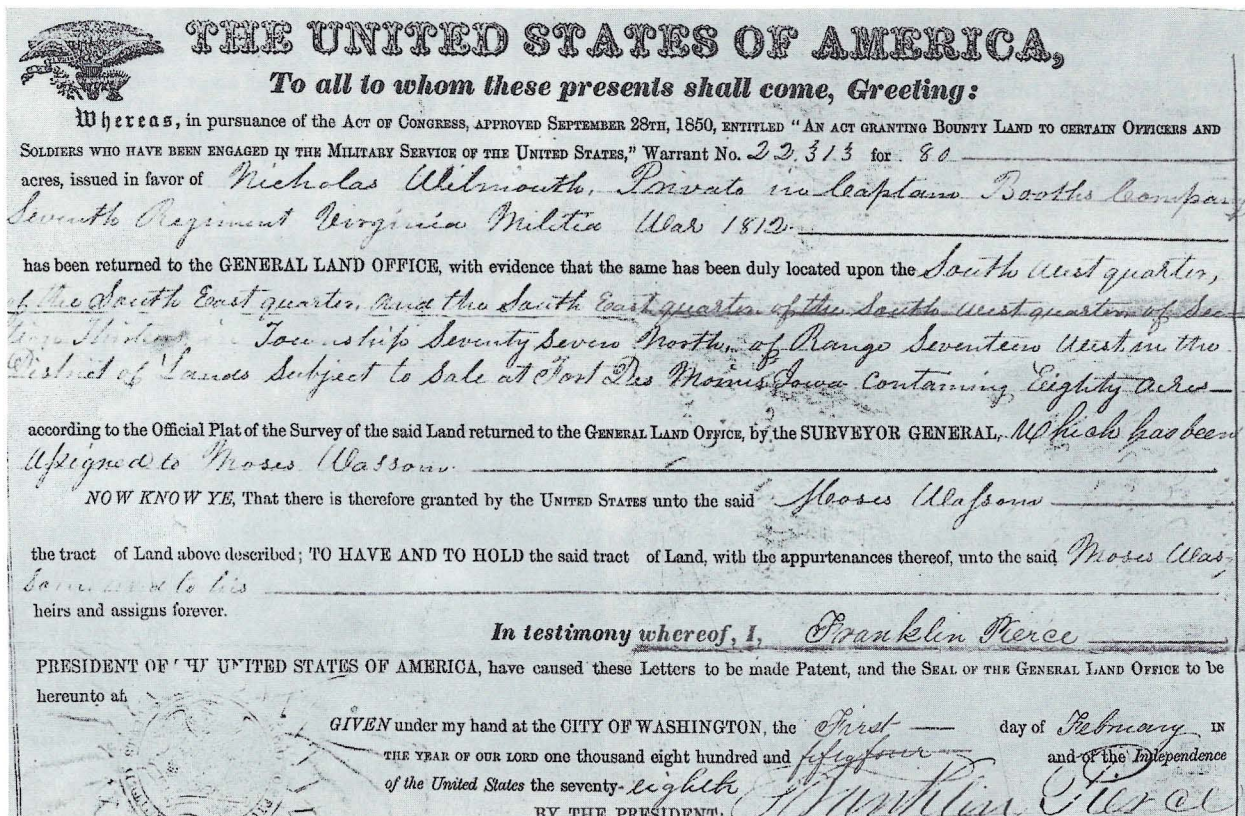 THE UNITED STATES OF AMERICA,
To all to whom these presents shall come, Greeting:
Whereas, in pursuance of the ACT OF CONGRESS, APPROVED SEPTEMBER 28TH, 1850, ENTITLED "AN ACT GRANTING BOUNTY LAND TO CERTAIN OFFICERS AND
SOLDIERS WHO HAVE BEEN ENGAGED IN THE MILITARY SERVICE OF THE UNITED STATES," Warrant No. 22.313 for 80
acres, issued in favor of Nicholas Wilmouth, Private in Captain Booths Company
Seventh Regiment Virginia Militia War 1812
has been returned to the GENERAL LAND OFFICE, with evidence that the same has been duly located upon the South West quarter,
of the South East quarter, and the South East quarter of the South West quarter of Sec
in Township Seventy Seven North, of Range Seventeen West in the
District of Lands Subject to Sale at Fort Des Moines Iowa Containing Eighty acres
according to the Official Plat of the Survey of the said Land returned to the GENERAL LAND OFFICE, by the SURVEYOR GENERAL, Which has been
assigned to Moses Wassom
NOW KNOW YE, That there is therefore granted by the UNITED STATES unto the said Moses Wassom
the tract of Land above described; TO HAVE AND TO HOLD the said tract of Land, with the appurtenances thereof, unto the said Moses Was
som and to his
heirs and assigns forever.
In testimony whereof, I, Franklin Pierce
PRESIDENT OF UNITED STATES OF AMERICA, have caused these Letters to be made Patent, and the SEAL OF THE GENERAL LAND OFFICE to be
hereunto
GIVEN under my hand at the CITY OF WASHINGTON, the First day of February IN
THE YEAR OF OUR LORD one thousand eight hundred and fifty four and of the Independence
of the United States the seventy-eighth Franklin Pierce
BY THE PRESIDENT: